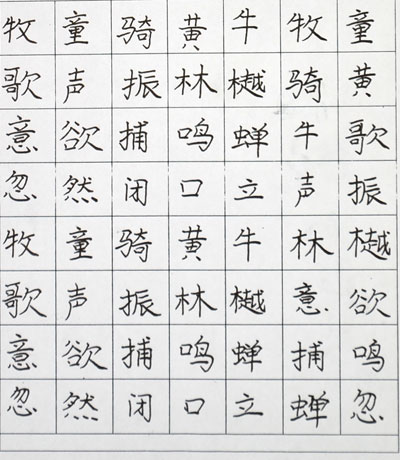 牧童骑黄牛牧童
歌声振林樾骑黄
意欲捕鸣蝉牛歌
忽然闭口立声振
牧童骑黄牛林樾
歌声振林樾意欲
意欲捕鸣蝉捕鸣
忽然闭口立蝉忽